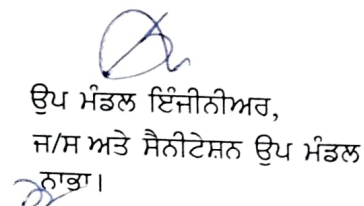 ਉਪ ਮੰਡਲ ਇੰਜੀਨੀਅਰ,
ਜ/ਸ ਅਤੇ ਸੈਨੀਟੇਸ਼ਨ ਉਪ ਮੰਡਲ
ਨਾਭਾ।